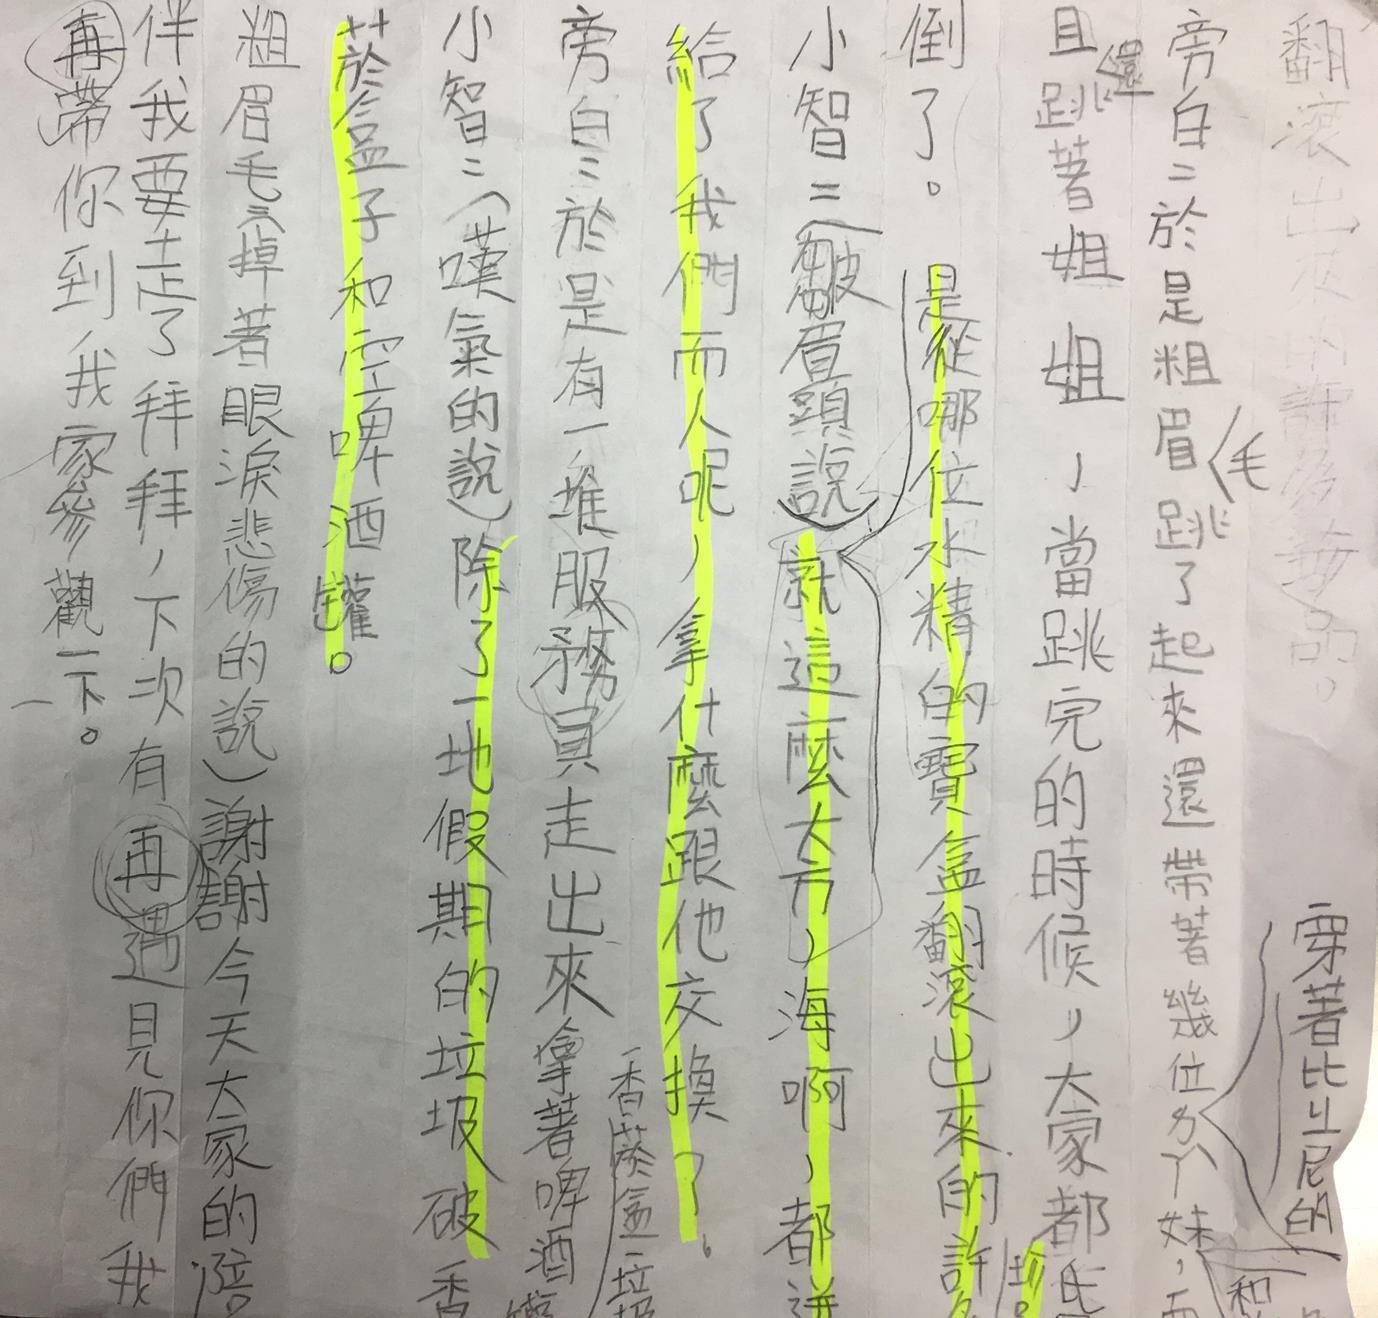 翻滾出來的許多贈品。
旁白：於是粗眉毛跳了起來還帶著幾位ㄌㄚ妹，而
穿著比ㄐ尼的
且還跳著姐姐，當跳完的時候，大家都
倒了。是從哪位水精的寶盒翻滾出來的許多
小智：（皺眉頭說）就這麼大方，海啊，都送
給了我們而人呢，拿什麼跟他交換了。
旁白：於是有一堆服務員走出來拿著啤酒罐
香菸盒垃圾
小智：（嘆氣的說）除了一地假期的垃圾破香
菸盒子和空啤酒罐。
粗眉毛：掉著眼淚悲傷的說）謝謝今天大家的陪
伴我要走了拜拜，下次有再遇見你們我
再帶你到我家參觀一下。